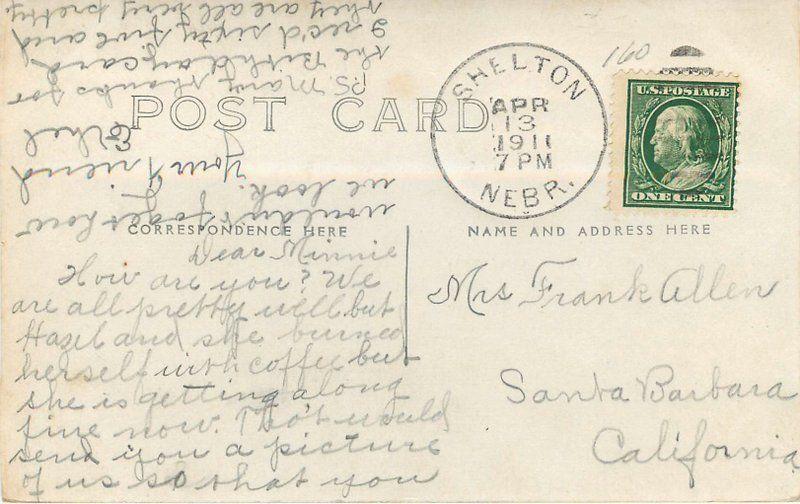 160
POST CARD
SHELTON
APR
13
1911
7 PM
NEBR.
U.S. POSTAGE
ONE CENT
CORRESPONDENCE HERE
NAME AND ADDRESS HERE
Dear Minnie
How are you? We
are all pretty well but
Hazel and she burned
herself with coffee but
she is getting along
fine now. Tho't would
send you a picture
of us so that you
wouldn't forget how
we look.
Your Friend
Ethel
P.S. Many thanks for
the Birthday card
I rec'd sixty five and
they are all very pretty
Mrs Frank Allen
Santa Barbara
California